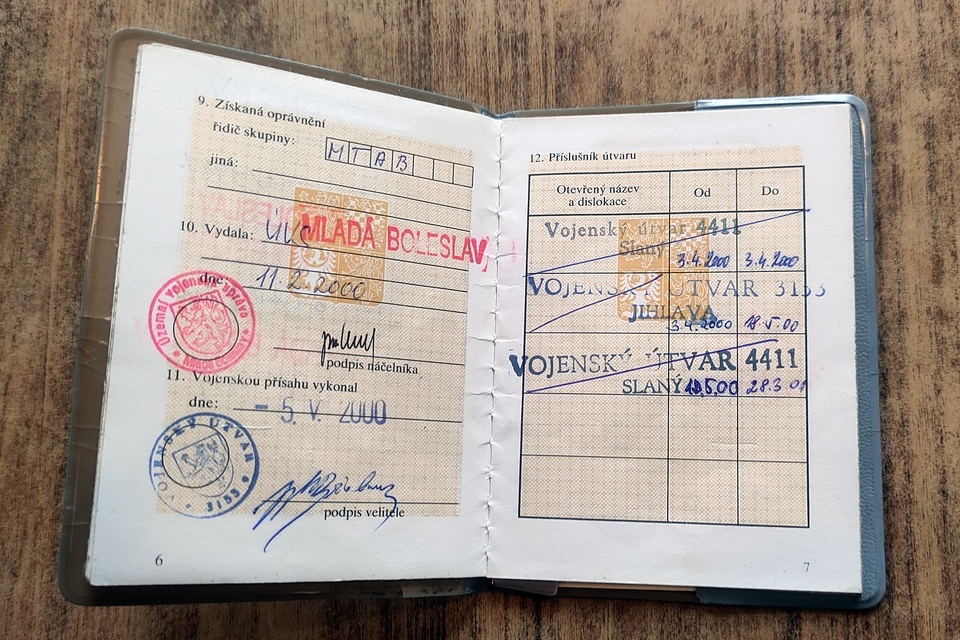 9. Získaná oprávnění
řidič skupiny: M T A B
jiná:
10. Vydala: ÚVS MLADÁ BOLESLAV,
dne: 11. 2. 2000
Územní vojenská správa
podpis náčelníka
11. Vojenskou přísahu vykonal
dne: - 5. V. 2000
VOJENSKÝ ÚTVAR
3153
podpis velitele
6
12. Příslušník útvaru
Otevřený název a dislokace
Od
Do
Vojenský útvar 4411
Slaný
3.4.2000 3.4.2000
VOJENSKÝ ÚTVAR 3153
JIHLAVA
3.4.2000 18.5.00
VOJENSKÝ ÚTVAR 4411
SLANÝ 18.5.00 28.3.01
7